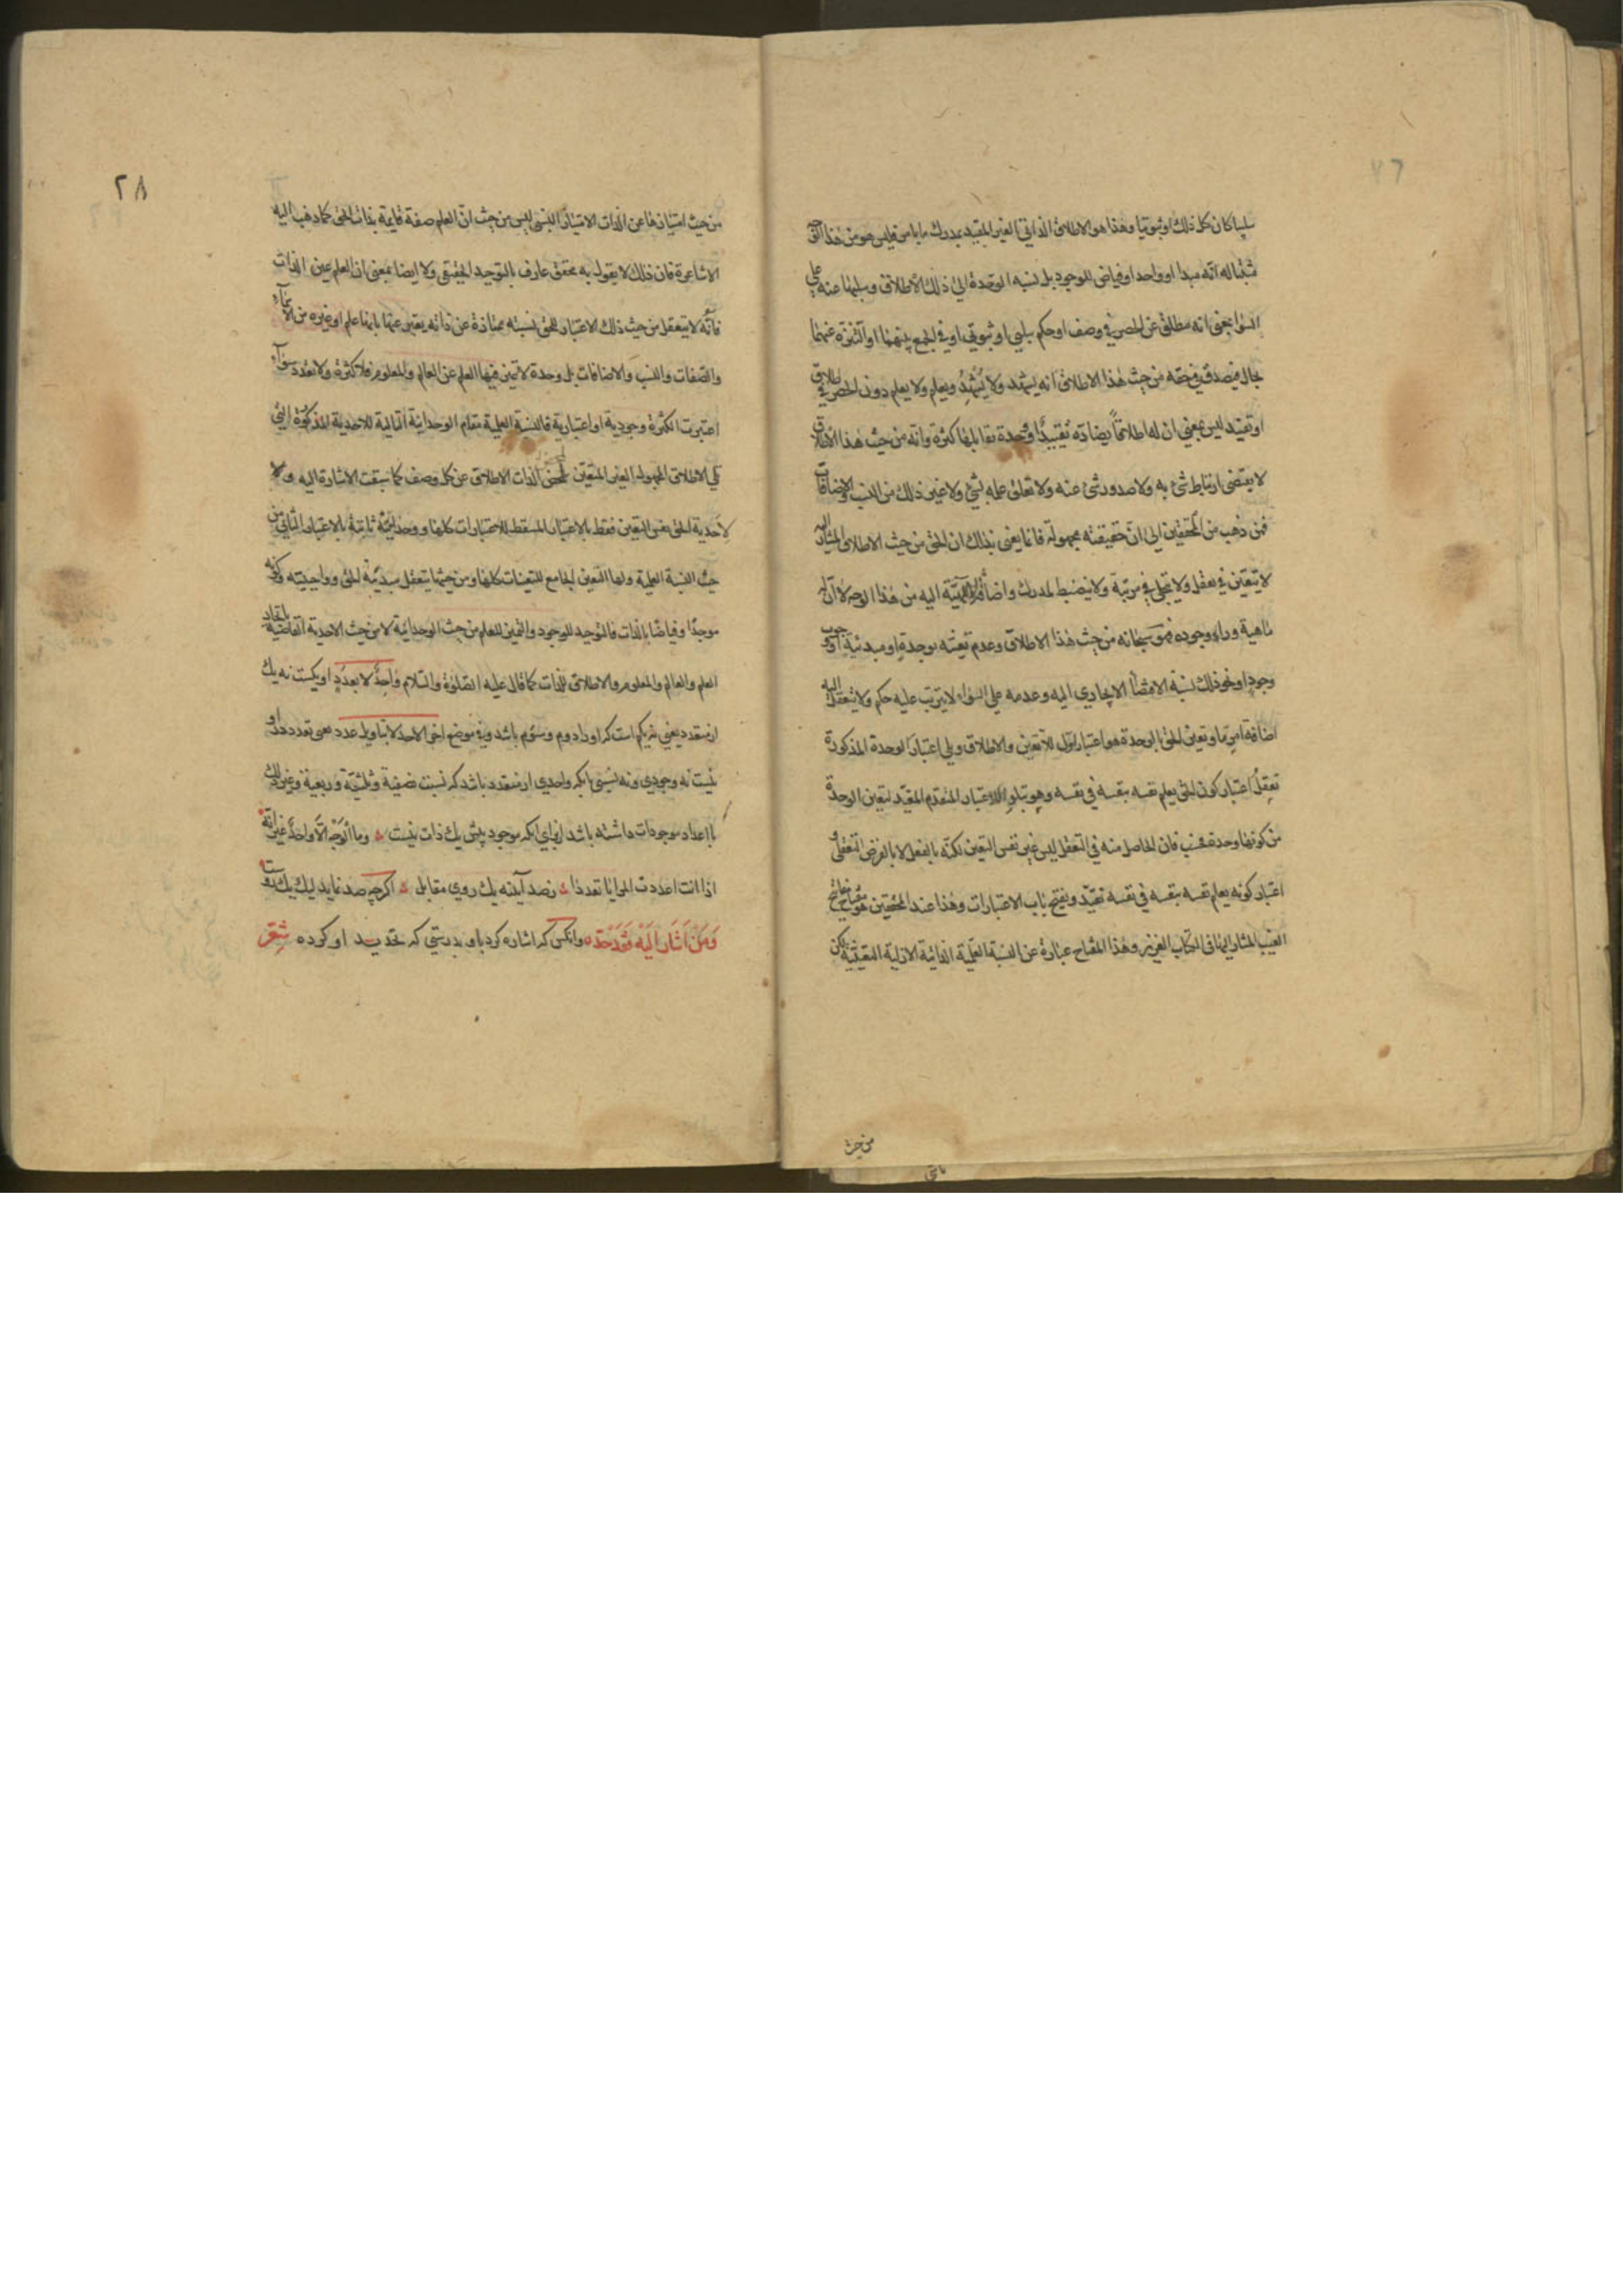 سلبيا كان كل ذلك او ثبوتيا وهذا هو الاطلاق الذاتي الغير المقيد بمدرك ما بامر فليس هو من هذا
مثبتا له انه مبدا او واحد او فياض للوجود بل نسبه الوحدة الى ذلك الاطلاق وسلبها عنه على
السواء بمعنى انه مطلق عن الحصر في وصف او حكم سلبي او ثبوتي او في الجمع بينهما او التنزه عنهما
بحال فيصدق في حقه من حيث هذا الاطلاق انه يشهد ولا يُشْهَدُ ويعلم ولا يعلم دون الحصر في اطلاق
او تقييد ليس بمعنى ان له اطلاقاً يضاده تقييدٌ او وحدة تقابلها كثرة وانه من حيث هذا الاطلاق
لا يقتضى ارتباط شئ به ولا صدور شئ عنه ولا تعلق علمه بشئ ولا غير ذلك من النسب والاضافات
فمن ذهب من المحققين الى ان حقيقته مجهولة فانما يعنى بذلك ان الحق من حيث الاطلاق المشار اليه
لا يتعين في تعقل ولا يتجلى في مرتبة ولا ينضبط لمدرك واضافة الالهية اليه من هذا الوجه لا ان له
ماهية وراء وجوده فهو سبحانه من حيث هذا الاطلاق وعدم تعينه بوحدة او مبدئية او وجوب
وجود او نحو ذلك نسبة الاقتضاء الايجادي اليه وعدمه على السواء لا يترتب عليه حكم ولا يتعقل اليه
اضافة امر ما وتعين الحق بالوحدة هو اعتبار اول للاتعين والاطلاق ويلى اعتبار الوحدة المذكورة
تعقل اعتبار كون الحق يعلم نفسه بنفسه في نفسه وهو يتلو الاعتبار المتقدم المقيد لتعين الوحدة
من كونها وحدة فحسب فان الحاصل منه في التعقل ليس غير نفس التعين لكنه بالفعل لا بالفرض التعقلى و
اعتبار كونه يعلم نفسه بنفسه في نفسه تقيد ويفتح باب الاعتبارات وهذا عند المحققين هو مفتاح مفاتح
الغيب المشار اليها في الكتاب العزيز وهذا المفتاح عبارة عن النسبة العلمية الذاتية الازلية التعينية لكن
من حيث
٢٨
من حيث امتيازها عن الذات الامتياز النسبي ليس من حيث ان العلم صفة قايمة بذات الحق كما ذهب اليه
الاشاعرة فان ذلك لا يقول به محقق عارف بالتوحيد الحقيقي ولا ايضا بمعنى ان العلم عين الذات
فانه لا يتعقل من حيث ذلك الاعتبار للحق نسبته ممتازة عن ذاته يعبر عنها بانها علم او غيره من الاسماء
والصفات والنسب والاضافات بل وحدة لا يتميز فيها العلم عن العالم والمعلوم فلا كثرة ولا تعدد سواء
اعتبرت الكثرة وجودية او اعتبارية فالنسبة العلمية مقام الوحدانية التالية للاحدية المذكورة التي
تلى الاطلاق المجهول الغير المتعين لمحض الذات الاطلاق عن كل وصف كما سبقت الاشارة اليه ولا
لاحدية الحق نفس التعين فقط بالاعتبار المسقط للاعتبارات كلها ووحدانيته ثابتة بالاعتبار الثاني من
حيث النسبة العلمية ولها التعين الجامع للتعينات كلها ومن حيثها يتعقل مبدئية الحق وواجبيته وكونه
موجدًا وفياضًا بالذات فالتوحيد للوجود والتميز للعلم من حيث الوحدانية لا من حيث الاحدية القاضية باتحاد
العلم والعالم والمعلوم والاطلاق للذات كما قال عليه الصلوة والسلام واحدٌ لا بعددٍ او يكست نه يك
از متعدد يعني نه يكى است كه او را دوم وسوم باشد وفي موضع اخر الاحد لا بتاويل عدد يعنى تعدد در او
نيست نه وجودي ونه نسبي بانكه واحدي از متعدد باشد كه نسبت نصفية وثلثية وربعية وغير ذلك
با اعداد موجودات داشته باشد از براي انكه موجود بيش يك ذات نيست وما الوجه الا واحد غير انه
اذا انت اعددت المرايا تعددا در صد آينه يك روي مقابل اكرچه صد نمايد ليك يك روست
وَمَنْ اَشَارَ اِلَيْهِ فَقَدْ حَدَّه وانكس كه اشاره كرد باو بدرستي كه تحديد او كرده شعر